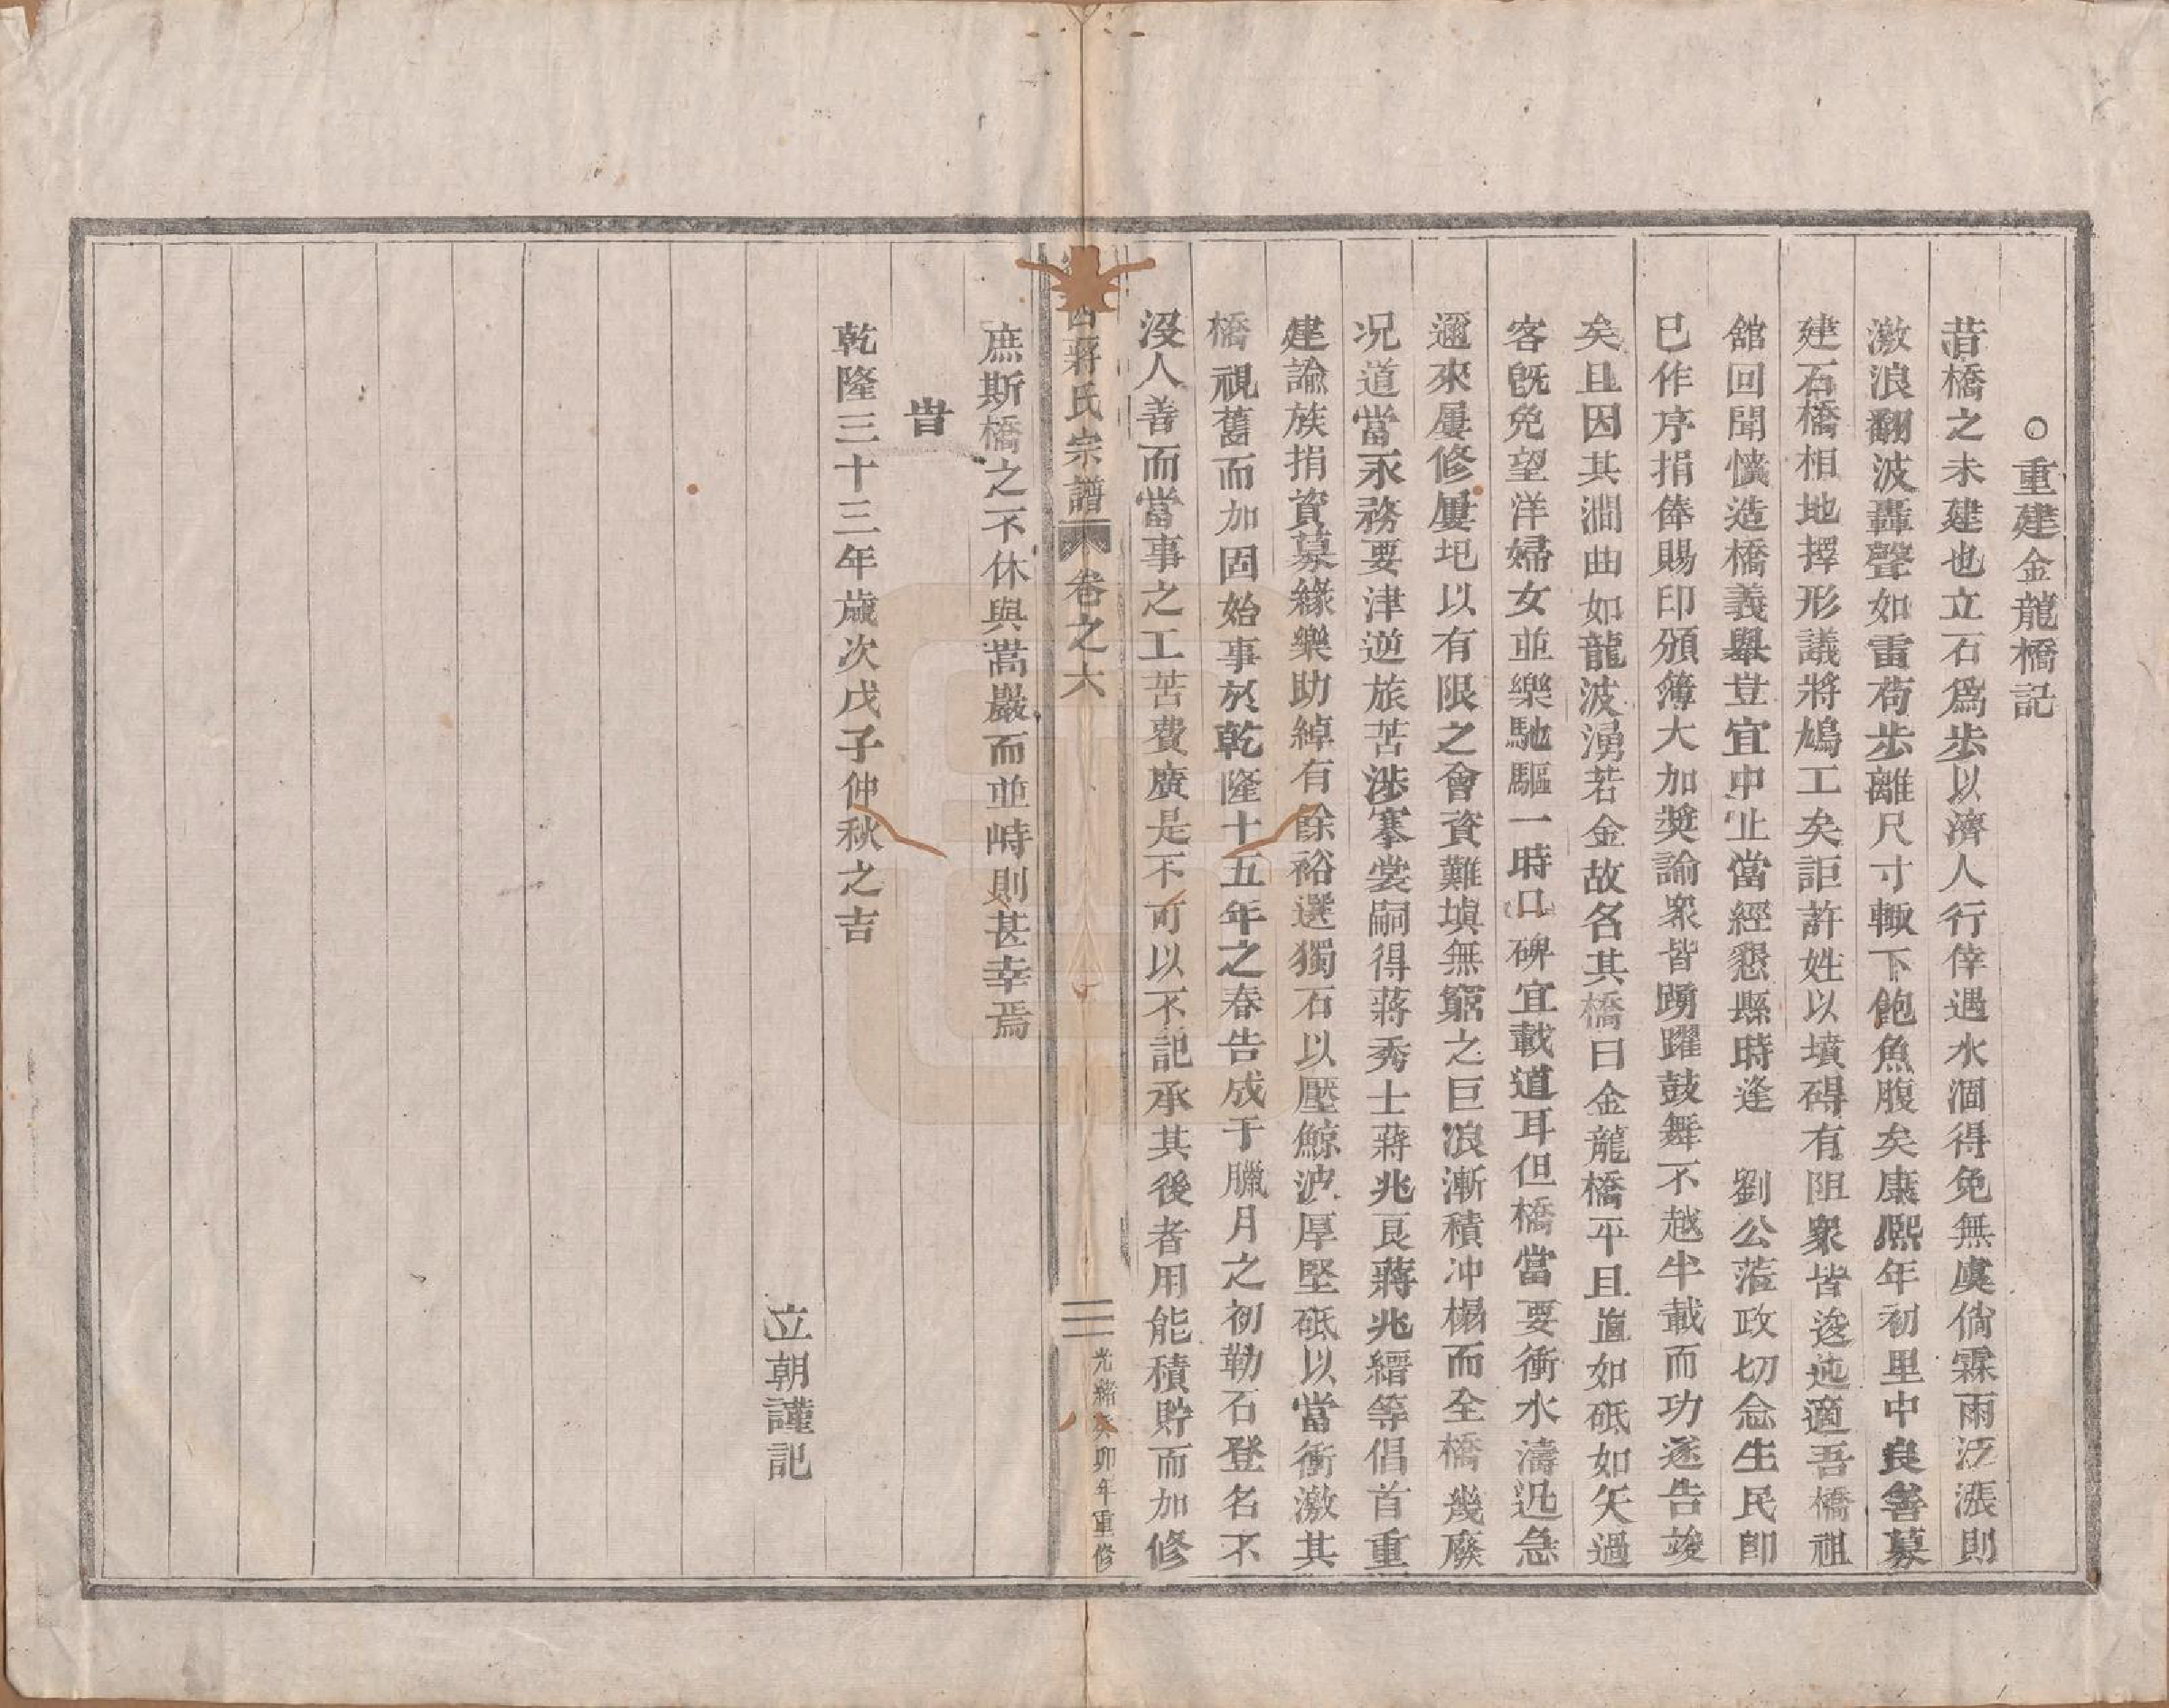 ○重建金龍橋記
昔橋之未建也立石爲步以濟人行倖遇水涸得免無虞倘霖雨泛漲則
激浪翻波轟聲如雷苟步離尺寸輙下飽魚腹矣康熙年初里中良善募
建石橋相地擇形議將鳩工矣詎許姓以墳碍有阻衆皆逡迍適吾橋祖
舘回聞憤造橋義舉豈宜中止當經懇縣時逢　劉公蒞政切念生民卽
已作序捐俸賜印頒簿大加奬諭衆皆踴躍鼓舞不越半載而功遂告竣
矣且因其澗曲如龍波湧若金故名其橋曰金龍橋平且直如砥如矢過
客旣免望洋婦女並樂馳驅一時口碑宜載道耳但橋當要衝水濤迅急
邇來屢修屢圮以有限之會資難塡無窮之巨浪漸積冲榻而全橋幾廢
况道當永務要津逆旅苦涉搴裳嗣得蔣秀士蔣兆良蔣兆縉等倡首重
建諭族捐資募緣樂助綽有餘裕選獨石以壓鯨波厚堅砥以當衝激其
橋視舊而加固始事於乾隆十五年之春告成于臘月之初勒石登名不
沒人善而當事之工苦費廣是不可以不記承其後者用能積貯而加修
西蔣氏宗譜　卷之六　三　光緒癸卯年重修
庶斯橋之不休與嵩巖而並峙則甚幸焉
旹
乾隆三十三年歲次戊子仲秋之吉
立朝謹記